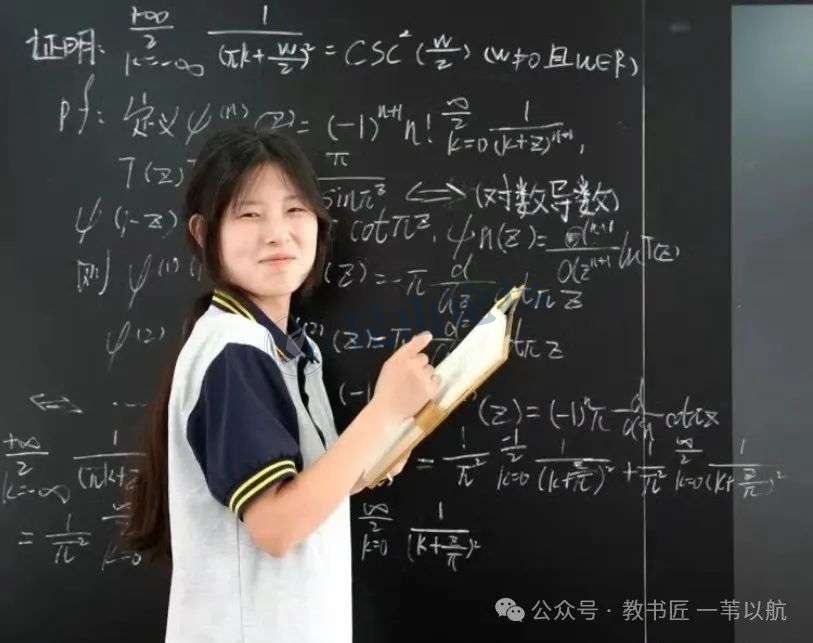 证明: +∞ Σ k=-∞ 1/(πk+w/2)² = CSC²(w/2) (w≠0且w∈R)
pf: 定义 ψ⁽ⁿ⁾(z) = (-1)ⁿ⁺¹ n! ∞ Σ k=0 1/(k+z)ⁿ⁺¹,
Γ(z) π/sinπz ⟺ (对数导数)
ψ(1-z) cotπz, ψn(z) = dⁿ⁺¹/dzⁿ⁺¹ lnΓ(z)
则 ψ⁽¹⁾ (z) = -π d/dz πz
ψ⁽²⁾ ⁽²⁾(z) = πz
⟺ ... (-1) (z) = (-1)ⁿπ d/dn cotπz
+∞ Σ k=-∞ 1/(πk+ = 1/π² -1 Σ k=0 1/(k+z/π)² + 1/π² ∞ Σ k=0 1/(k+z/π)²
= 1/π² ∞ Σ k=0 ∞ Σ k=0 1/(k+z/π)²
公众号·教书匠 一苇以航